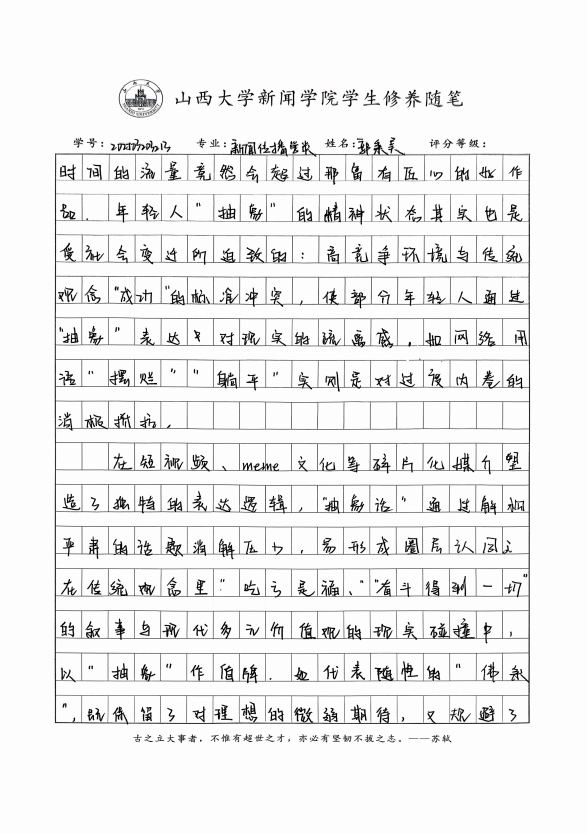 山西大学新闻学院学生修养随笔
学号: 专业:新闻传播学类 姓名: 评分等级:
时间的流量竟然会超过那留有匠心的好作
品．年轻人“抽象”的精神状态其实也是
受社会变迁所迫致的：高竞争环境与传统
观念“成功”的标准冲突，使部分年轻人通过
“抽象”表达出对现实的疏离感，如网络用
语“摆烂”“躺平”实则是对过度内卷的
消极抵抗．
在短视频、meme文化等碎片化媒介塑
造了独特的表达逻辑，“抽象话”通过解构
严肃的话题消解压力，易形成圈层认同之
在传统观念里“吃亏是福、“奋斗得到一切”
的叙事与现代多元价值观的现实碰撞中，
以“抽象”作盾牌．如代表随性的“佛系
”，既保留了对理想的微弱期待，又规避了
古之立大事者，不惟有超世之才，亦必有坚韧不拔之志。——苏轼